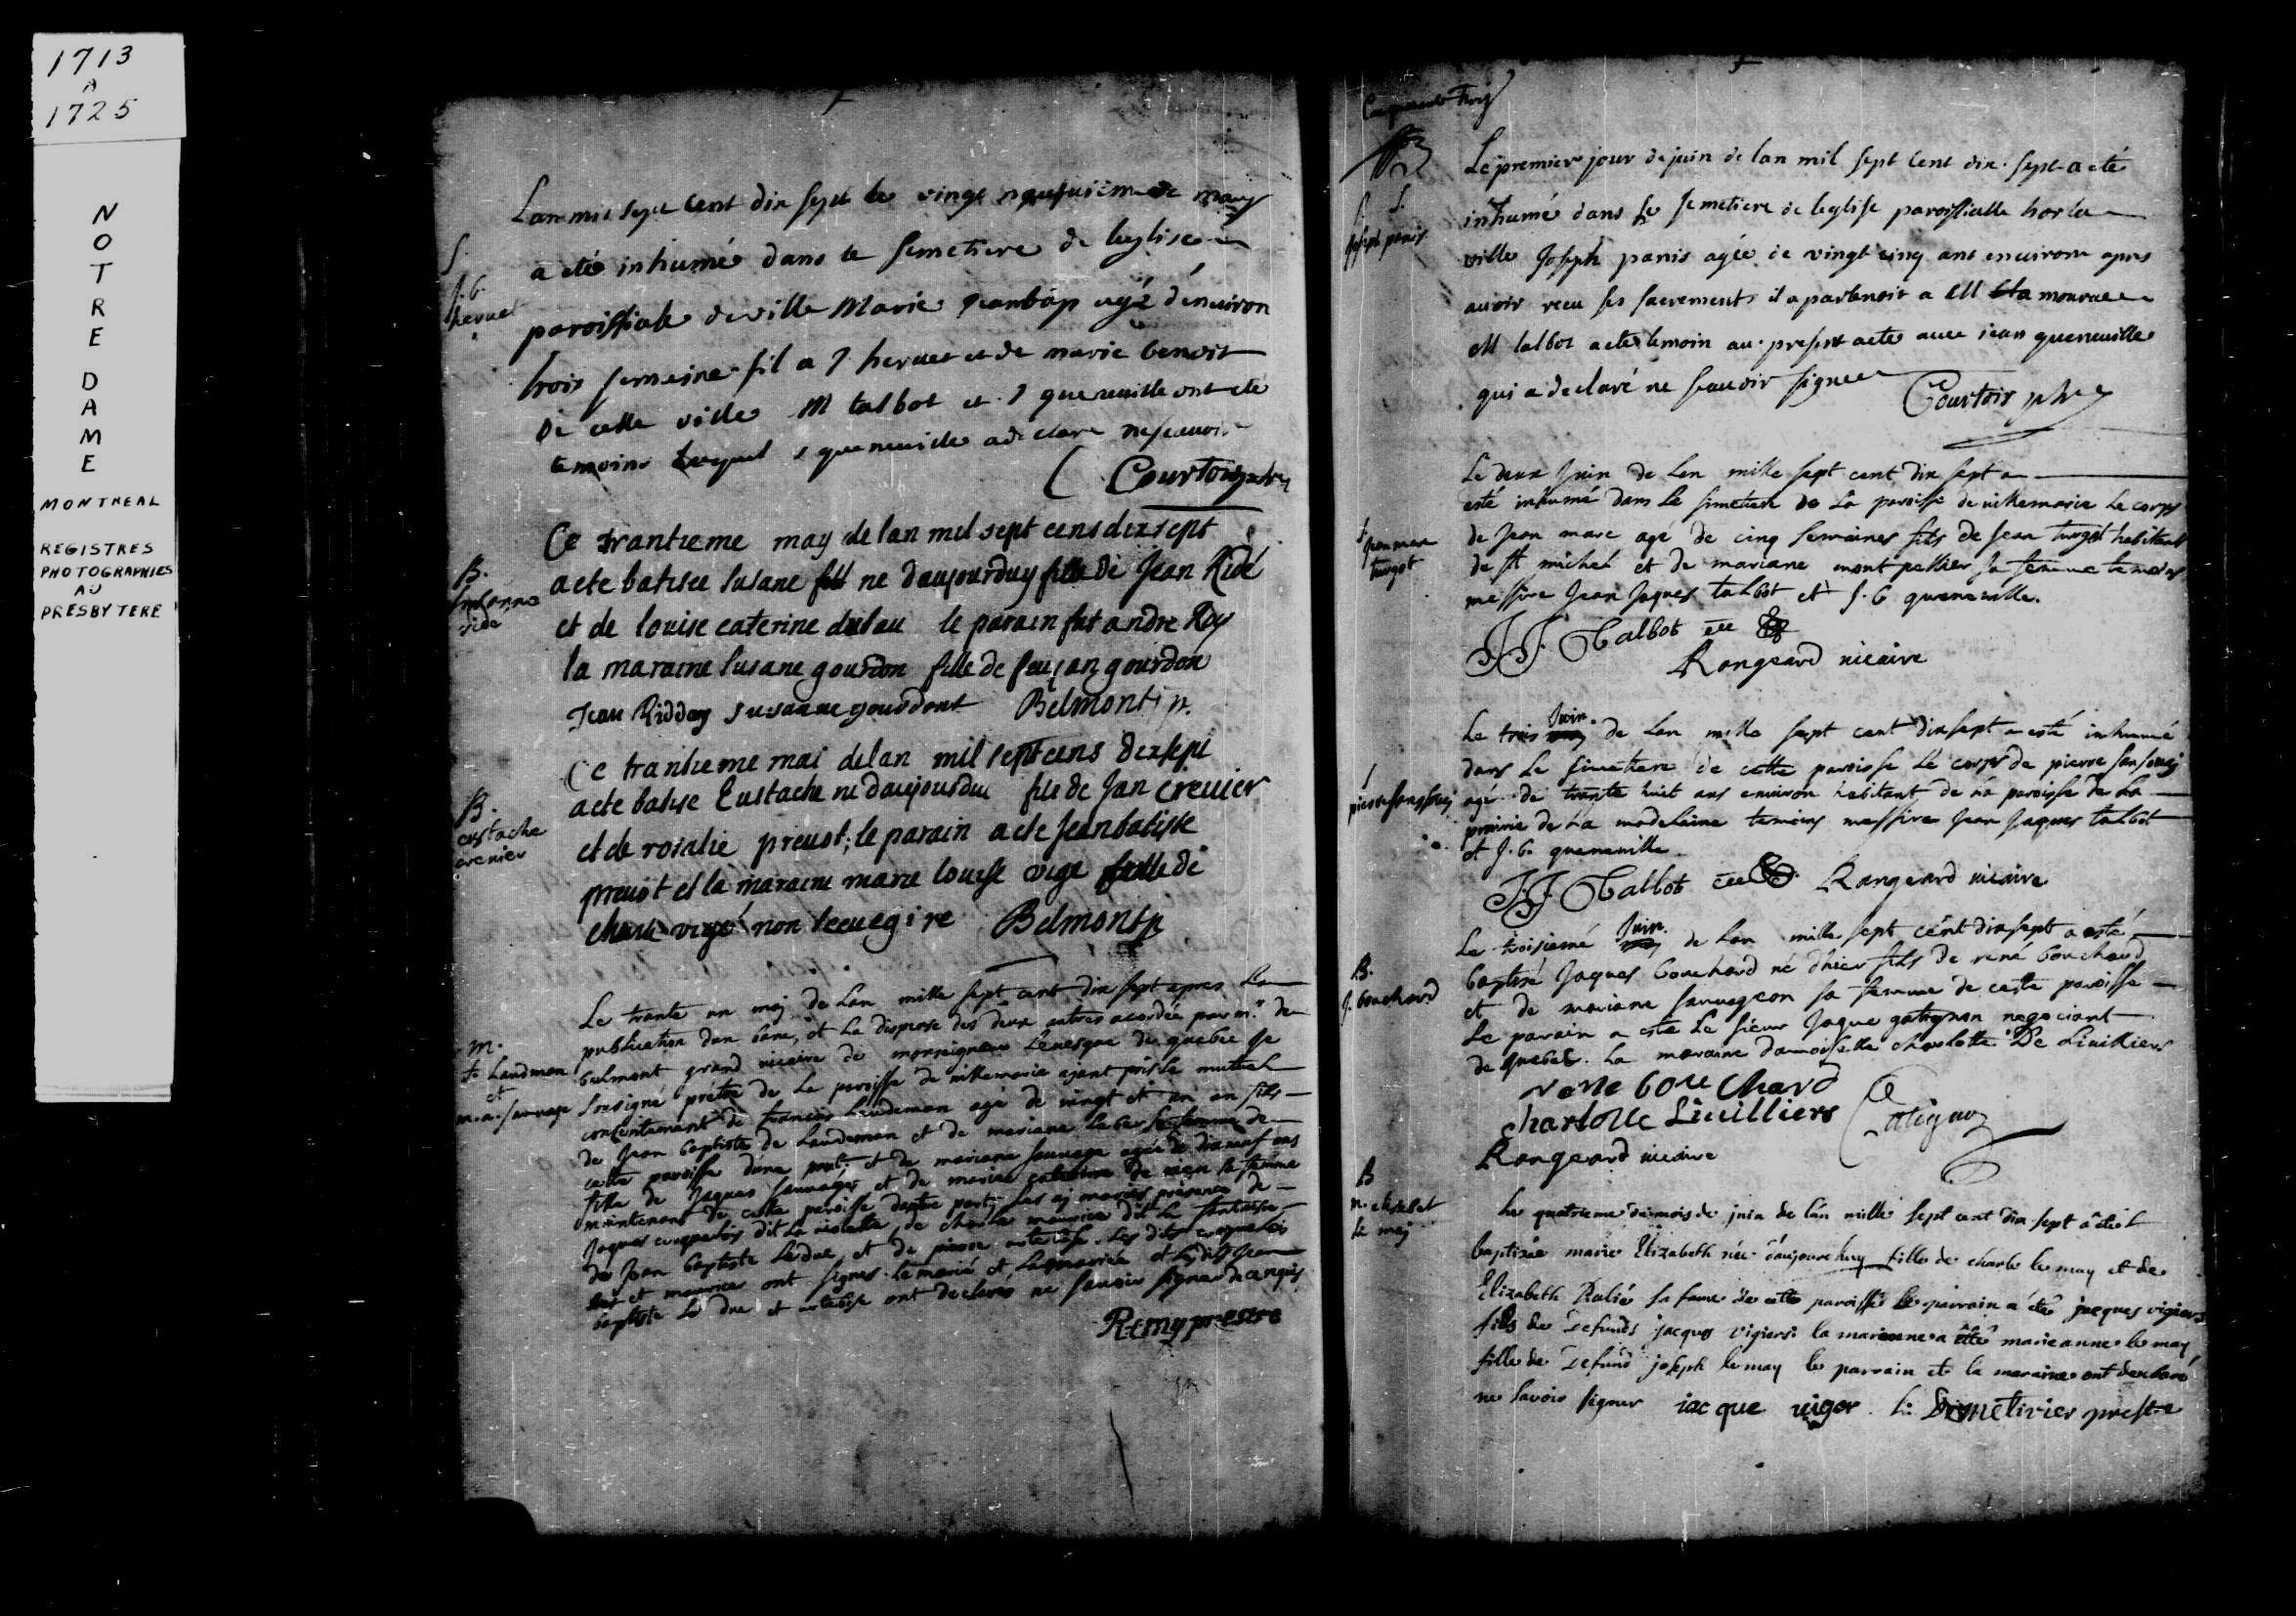 1713
A
1725
NOTRE DAME
MONTREAL
REGISTRES
PHOTOGRAPHIES
AU
PRESBYTERE
S.
J. b.
hervet
Lan mil sept cent dix sept le vingt neufuieme de may
a eté inhumé dans le semetiere de leglise
paroissiale de ville Marie jeanbap agé denuiron
trois semaine fil a J hervet et de marie benoit
de cette ville M talbot et J queneuille ont ete
temoins lequel queneuille a declaré ne scauoir
Courtois ptre
B.
susanne
ridé
Ce trantieme may de lan mil sept cens dixsept
a ete batisee susane ne daujourduy fille de Jean Ridé
et de louise caterine dulau le parain fut andre Roy
la maraine susane gourdon fille de feu jan gourdon
Jean Ridday susanne gourdont Belmont p.
B.
eustache
crenier
Ce trantieme mai delan mil sept cens dexsept
a ete batise Eustache ne daujourdui fils de Jan creuier
et de rosalie preuost; le parain a ete Jeanbatiste
preuost et la maraine marie louise vige fille de
charle vigé non sceu Belmont p
m.
f. Landman
et
m. a. sauvage
Le trante un may de Lan mille sept cent dix sept apres La
publication dun banc, et La dispense des deux autres acordée par mr. de
belmont grand vicaire de monseigneur Leuesque de quebec je
sousigné prêtre de La paroisse de villemarie ajant pris Le mutuel
consentement de francois Landeman agé de vingt et un an fils
de Jean baptiste de Landeman et de mariane sa femme de
cette paroisse dune part; et de mariane sauvage agée de dixneuf ans
fille de Jaques sauvages et de marie caterine sa femme
maintenant de cette paroisse dautre part; Les ai mariés présence de
Jaques dit La violette, de charle maurice dit La fantaisie
de Jean baptiste Leduc, et de pierre Les dits
et maurice ont signes. Le marié et La mariée et Lesdits Jean
baptiste Le duc et ont declares ne sauoir signer de
Remy prestre
Cinquante trois
S.
joseph panis
Le premier jour de juin de lan mil sept cent dix-sept a eté
inhumé dans le semetiere de leglise paroissialle hors la
ville Joseph panis agée de vingt cinq ans enuiron apres
auoir receu ses sacrements il apartenoit a M
M talbot a ete temoin au present acte auec jean queneuille
qui a declaré ne scauoir signer
Courtois ptre
S
jean marc
turgot
Le deux Juin de Lan mille sept cent dix sept a
esté inhumé dans Le simetiere de La paroisse de villemarie Le corps
de Jean marc agé de cinq semaines fils de Jean turgot habitant
de St michel et de mariane mont pellier sa femme temoins
messire Jean Jaques talbot et J. b queneuille.
J. J. Talbot ecc
Rangeard vicaire
S
pierre sanssouci
Le trois Juin de Lan mille sept cent dixsept a esté inhumé
dans Le simetiere de cette paroisse Le corps de pierre sansouci
agé de trante huit ans environ habitant de La paroisse de La
prairie de La madelaine temoins messire Jean Jaques talbot
et J. b. queneuille.
J. J. Talbot ecc Rangeard vicaire
B.
J. bouchard
Le troisiemé Juin de Lan mille sept cent dixsept a esté
baptisé Jaques bouchard né dhier fils de rené bouchard
et de mariane sauuageon sa femme de ceste paroisse
Le parain a esté Le sieur Jaque gatignon negociant
de quebec. La maraine damoiselle charlotte De Liuilliers
rene bouchard
charlotte Liuilliers Gatignon
Rangeard vicaire
B
m. elizabet
Le may
Le quatrieme du mois de juin de lan mille sept cent dix sept a eté
baptisée marie Elizabeth née d'aujourd'huy fille de charle le may et de
Elizabeth sa feme de cette paroisse le parrain a eté jacques vigiers
fils de defunds jacques vigiers la marainne a été marie anne le may
fille de defund joseph le may le parrain et la maraine ont declaré
ne savoir signer jacque viger prestre